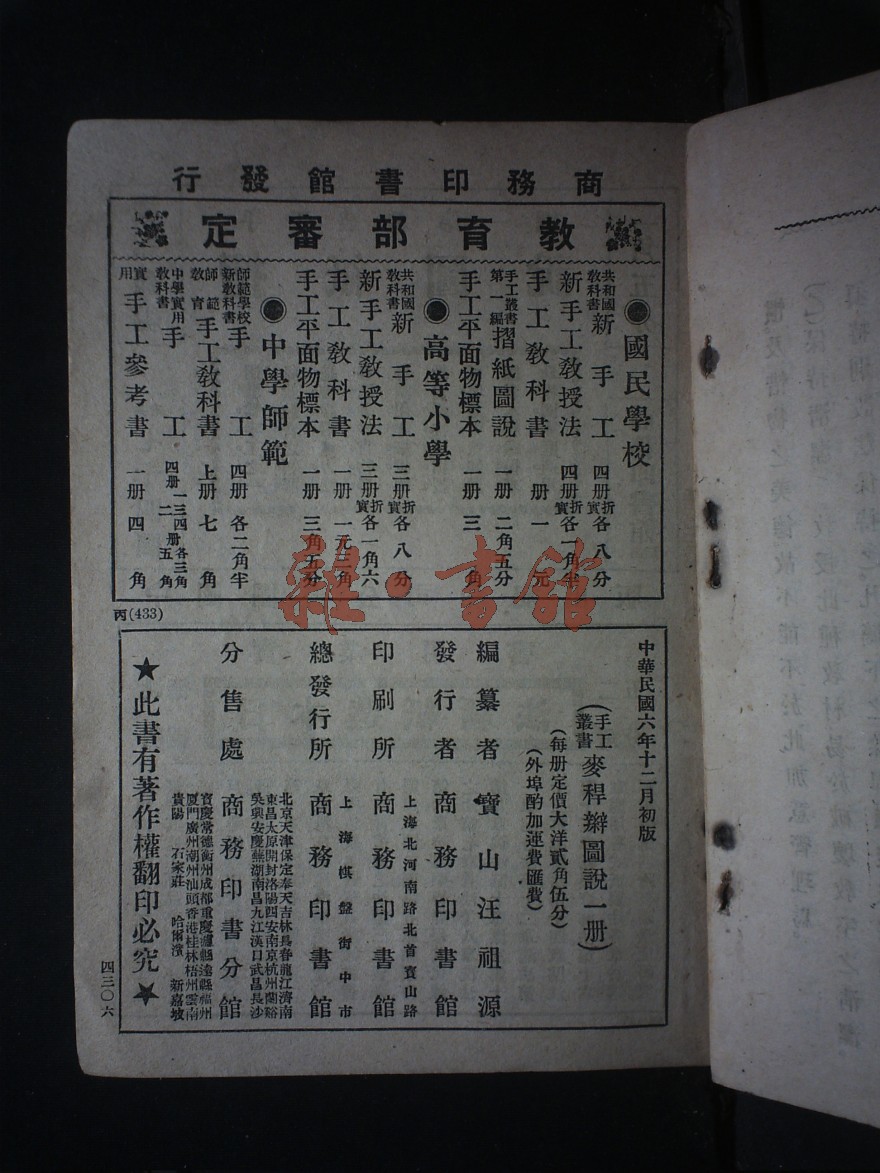 商務印書館發行
教育部審定
●國民學校
共和國教科書 新手工 四册 折實各八分
新手工教授法 四册 折實各一角半
手工教科書 一册 一元
手工叢書第一編 摺紙圖說 一册 二角五分
手工平面物標本 一册 三角
●高等小學
共和國教科書 新手工 三册 折實各八分
新手工教授法 三册 折實各一角六
手工教科書 一册 一元三角
手工平面物標本 一册 三角五分
●中學師範
師範學校新教科書 手工 四册 各二角半
師範教育 手工教科書 上册 七角
中學實用教科書 手工 四册 一三四册各三角 二五角
實用 手工參考書 一册 四角
丙(433)
中華民國六年十二月初版
(手工叢書 麥稈辮圖說一册)
(每册定價大洋貳角伍分)
(外埠酌加運費匯費)
編纂者 寶山汪祖源
發行者 商務印書館
上海北河南路北首寶山路
印刷所 商務印書館
上海棋盤街中市
總發行所 商務印書館
北京天津保定奉天吉林長春龍江濟南
東昌太原開封洛陽西安南京杭州蘭谿
吳興安慶蕪湖南昌九江漢口武昌長沙
分售處 商務印書分館
寶慶常德衡州成都重慶瀘縣達縣福州
廈門廣州潮州汕頭香港桂林梧州雲南
貴陽 石家莊 哈爾濱 新嘉坡
★此書有著作權翻印必究★
四三〇六
雜·書館